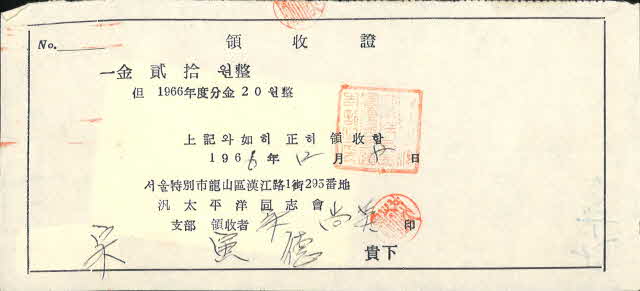 領收證
No.
一金 貳拾 원整
但 1966年度分金 20 원整
上記와 如히 正히 領收함
1966年 12月 日
서울特別市龍山區漢江路1街295番地
汎太平洋同志會
支部 領收者 尚 印
宋 寅德 貴下